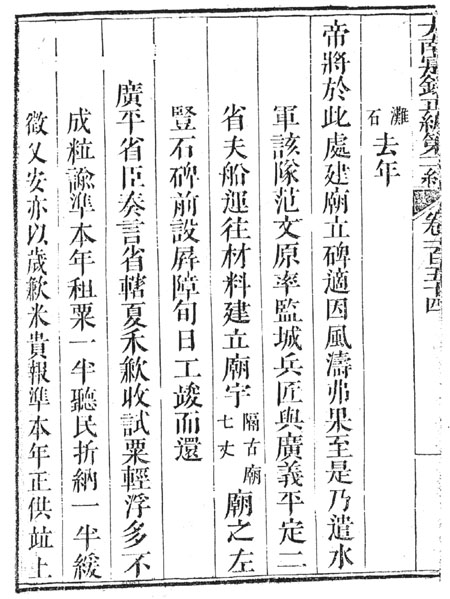 大南寔錄正編第二紀 卷一百五十四
灘石去年
帝將於此處建廟立碑適因風濤弗果至是乃遣水
軍該隊范文原率監城兵匠與廣義平定二
省夫船運往材料建立廟宇隔古廟七丈廟之左
豎石碑前設屛障旬日工竣而還
廣平省臣奏言省轄夏禾歉收試粟輕浮多不
成粒諭準本年租粟一半聽民折納一半緩
徵乂安亦以歲歉米貴報準本年正供竝上